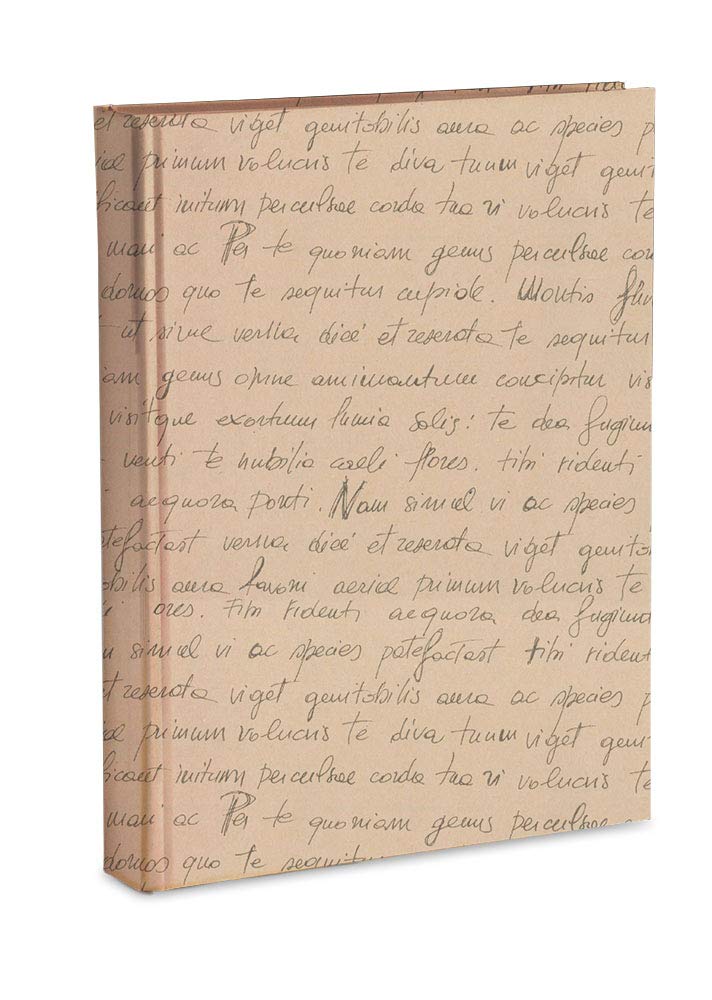 et reserata viget genitabilis aura ac species p
primum volucris te diva tuum viget geni
ficant initum perculsae corda tua vi volucris te
mani ac Per te quoniam genus perculsae cor
domos quo te sequitur cupide. Montis flu
ut sime verna dicé et reserata te sequitur
am genus omne animantum concipitur vis
visitque exortum lumia solis: te dea fugium
venti te nubilia caeli flores. tibi rident
aequora ponti. Nam simul vi ac species
patefactast verna dicé et reserata viget genito
bilis aura favoni aeria primum volucris te
ores. tibi rident aequora dea fugium
simul vi ac species patefactast tibi rident
t reserata viget genitabilis aura ac species p
primum volucris te diva tuum viget geni
ficant initum perculsae corda tua vi volucris te
mani ac Per te quoniam genus perculsae c
domos quo te sequitur